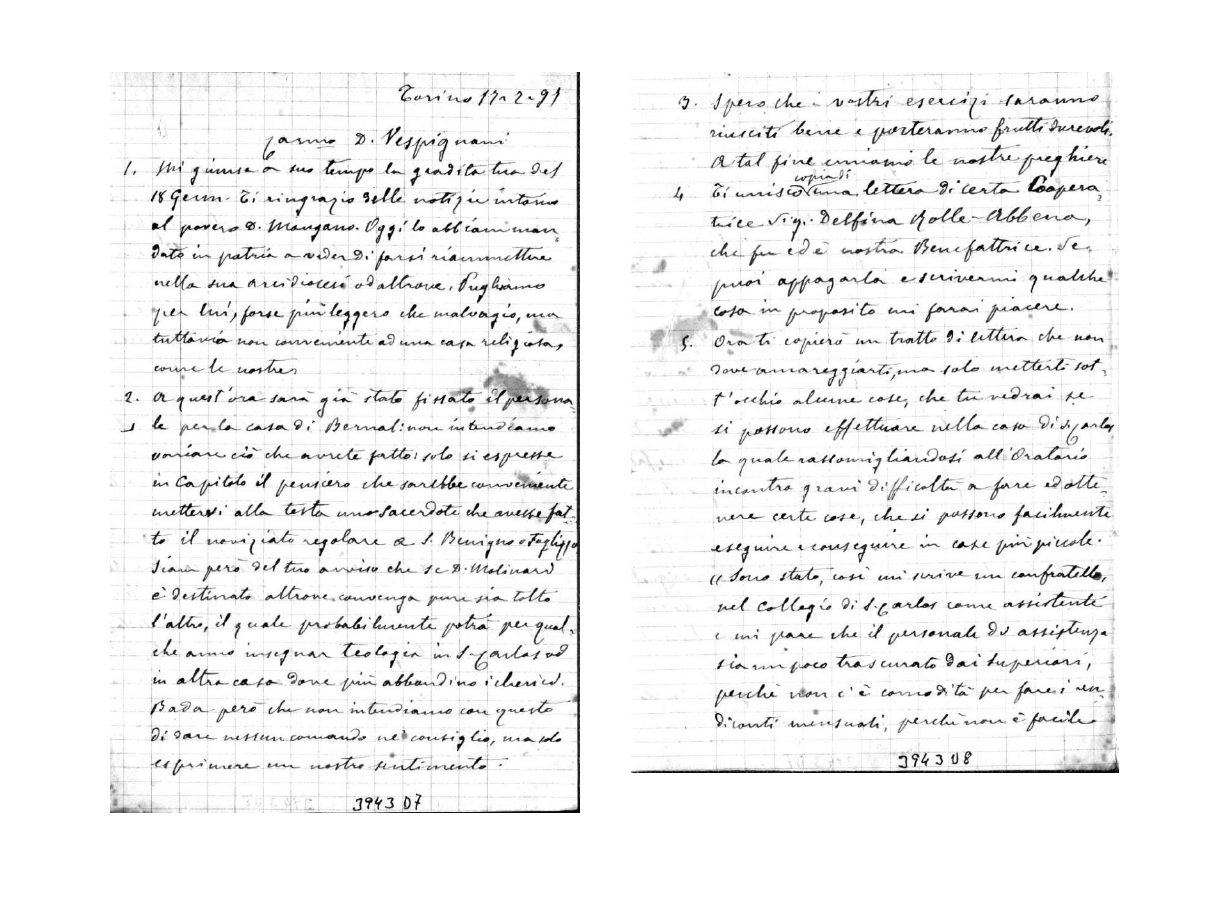 Torino 17-2-91
Carmo D. Vespignani
1. Mi giunse a suo tempo la gradita tua del
18 Genn. Ti ringrazio delle notizie intorno
al povero D. Mangano. Oggi lo abbiam man-
dato in patria a veder di farsi riammettere
nella sua arcidiocesi od altrove. Preghiamo
per lui, forse più leggero che malvagio, ma
tuttavia non conveniente ad una casa religiosa,
come le nostre.
2. A quest'ora sarà già stato fissato il persona-
le per la casa di Bernal: non intendiamo
variare ciò che avrete fatto: solo si espresse
in Capitolo il pensiero che sarebbe conveniente
mettervi alla testa uno sacerdote che avesse fat-
to il noviziato regolare a S. Benigno o Foglizzo
Siam però del tuo avviso che se D. Molinari
è destinato altrove convenga pure sia tolto
l'altro, il quale probabilmente potrà per qual-
che anno insegnar teologia in S. Carlos od
in altra casa dove più abbondino i chierici.
Bada però che non intendiamo con questo
di dare nessun comando nè consiglio, ma solo
esprimere un nostro sentimento.
3943 D7
3. Spero che i vostri esercizi saranno
riusciti bene e porteranno frutti durevoli.
A tal fine uniamo le nostre preghiere
copia di
4 Ti unisco una lettera di certa Coopera-
trice Sig. Delfina Rolle-Abbena,
che fu ed è nostra Benefattrice. Se
puoi appagarla e scrivermi qualche
cosa in proposito mi farai piacere.
5. Ora ti copierò un tratto di lettera che non
deve amareggiarti, ma solo metterti sot-
t'occhio alcune cose, che tu vedrai se
si possono effettuare nella casa di S. Carlos
la quale rassomigliandosi all'Oratorio
incontra gravi difficoltà a fare ed otte-
nere certe cose, che si possono facilmente
eseguire e conseguire in case più piccole.
"Sono stato, così mi scrive un confratello,
nel Collegio di S. Carlos come assistente
e mi pare che il personale di assistenza
sia un poco trascurato dai Superiori,
perchè non c'è comodità per fare i ren-
diconti mensuali, perchè non è facile
3943 D8